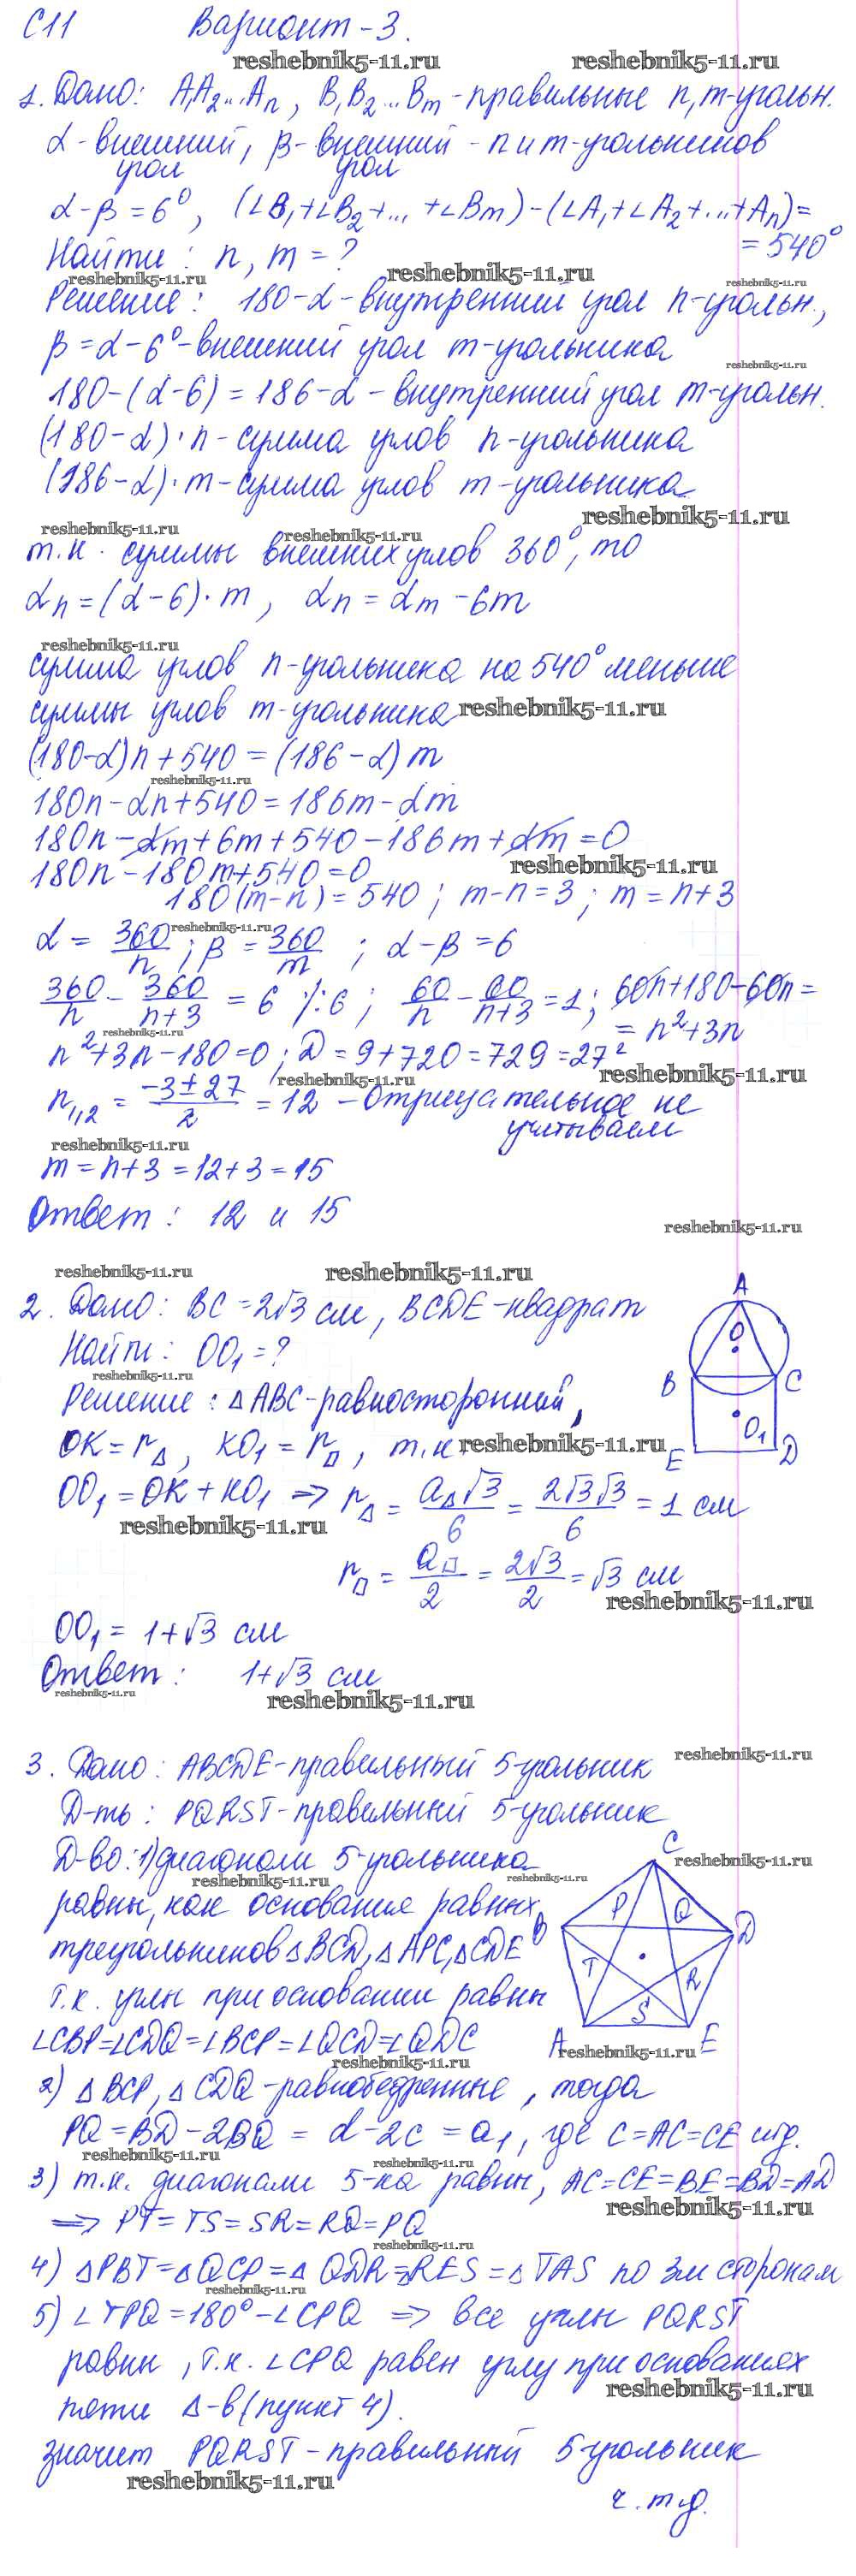 С11 Вариант-3.
reshebnik5-11.ru reshebnik5-11.ru
1. Дано: A₁A₂...Aₙ, B₁B₂...Bₘ - правильные n, m-угольн.
α - внешний угол, β - внешний угол - n и m-угольников
α-β=6°, (∠B₁+∠B₂+...+∠Bm)-(∠A₁+∠A₂+...+Aₙ)=
=540°
Найти: n, m = ?
reshebnik5-11.ru reshebnik5-11.ru reshebnik5-11.ru
Решение: 180-α - внутренний угол n-угольн.,
β=α-6° - внешний угол m-угольника
reshebnik5-11.ru
180-(α-6)=186-α - внутренний угол m-угольн.
(180-α)·n - сумма углов n-угольника
(186-α)·m - сумма углов m-угольника
reshebnik5-11.ru reshebnik5-11.ru reshebnik5-11.ru
т.к. суммы внешних углов 360°, то
αn=(α-6)·m, αn=αm-6m
reshebnik5-11.ru
сумма углов n-угольника на 540° меньше
суммы углов m-угольника reshebnik5-11.ru
(180-α)n+540=(186-α)m
reshebnik5-11.ru
180n-αn+540=186m-αm
180n-αm+6m+540-186m+αm=0
180n-180m+540=0 reshebnik5-11.ru
180(m-n)=540; m-n=3; m=n+3
reshebnik5-11.ru
α = 360/n; β = 360/m; α-β=6
360/n - 360/(n+3) = 6 |:6; 60/n - 60/(n+3) = 1; 60n+180-60n=
= n²+3n
reshebnik5-11.ru
n²+3n-180=0; D=9+720=729=27²
reshebnik5-11.ru reshebnik5-11.ru
n₁,₂ = (-3±27)/2 = 12 - Отрицательное не
учитываем
reshebnik5-11.ru
m=n+3=12+3=15
Ответ: 12 и 15
reshebnik5-11.ru
reshebnik5-11.ru reshebnik5-11.ru
2. Дано: BC=2√3 см, BCDE-квадрат
Найти: OO₁=?
reshebnik5-11.ru
Решение: △ABC-равносторонний,
OK=r△, KO₁=r□, т.к. reshebnik5-11.ru
OO₁=OK+KO₁ ⇒ r△ = a△√3/6 = 2√3√3/6 = 1 см
reshebnik5-11.ru
r□ = a□/2 = 2√3/2 = √3 см
reshebnik5-11.ru
OO₁=1+√3 см
Ответ: 1+√3 см
reshebnik5-11.ru reshebnik5-11.ru
A
O
B C
O₁
E D
3. Дано: ABCDE-правильный 5-угольник reshebnik5-11.ru
Д-ть: PQRST-правильный 5-угольник
Д-во: 1) диагонали 5-угольника
reshebnik5-11.ru reshebnik5-11.ru reshebnik5-11.ru
равны, как основания равных
треугольников △BCD, △APC, △CDE
т.к. углы при основании равны
∠CBP=∠CDQ=∠BCP=∠QCD=∠QDC
reshebnik5-11.ru reshebnik5-11.ru
C
P Q
B D
T R
S
A E
2) △BCP, △CDQ-равнобедренные, тогда
PQ=BD-2BQ=d-2c=a₁, где c=AC=CE итд.
reshebnik5-11.ru reshebnik5-11.ru
3) т.к. диагонали 5-ка равны, AC=CE=BE=BD=AD
reshebnik5-11.ru
⇒ PT=TS=SR=RQ=PQ
reshebnik5-11.ru
4) △PBT=△QCP=△QDR=△RES=△TAS по 3м сторонам
reshebnik5-11.ru
5) ∠TPQ=180°-∠CPQ ⇒ все углы PQRST
равны, т.к. ∠CPQ равен углу при основаниях
reshebnik5-11.ru
пяти △-в (пункт 4).
значит PQRST-правильный 5-угольник
reshebnik5-11.ru
ч.т.д.